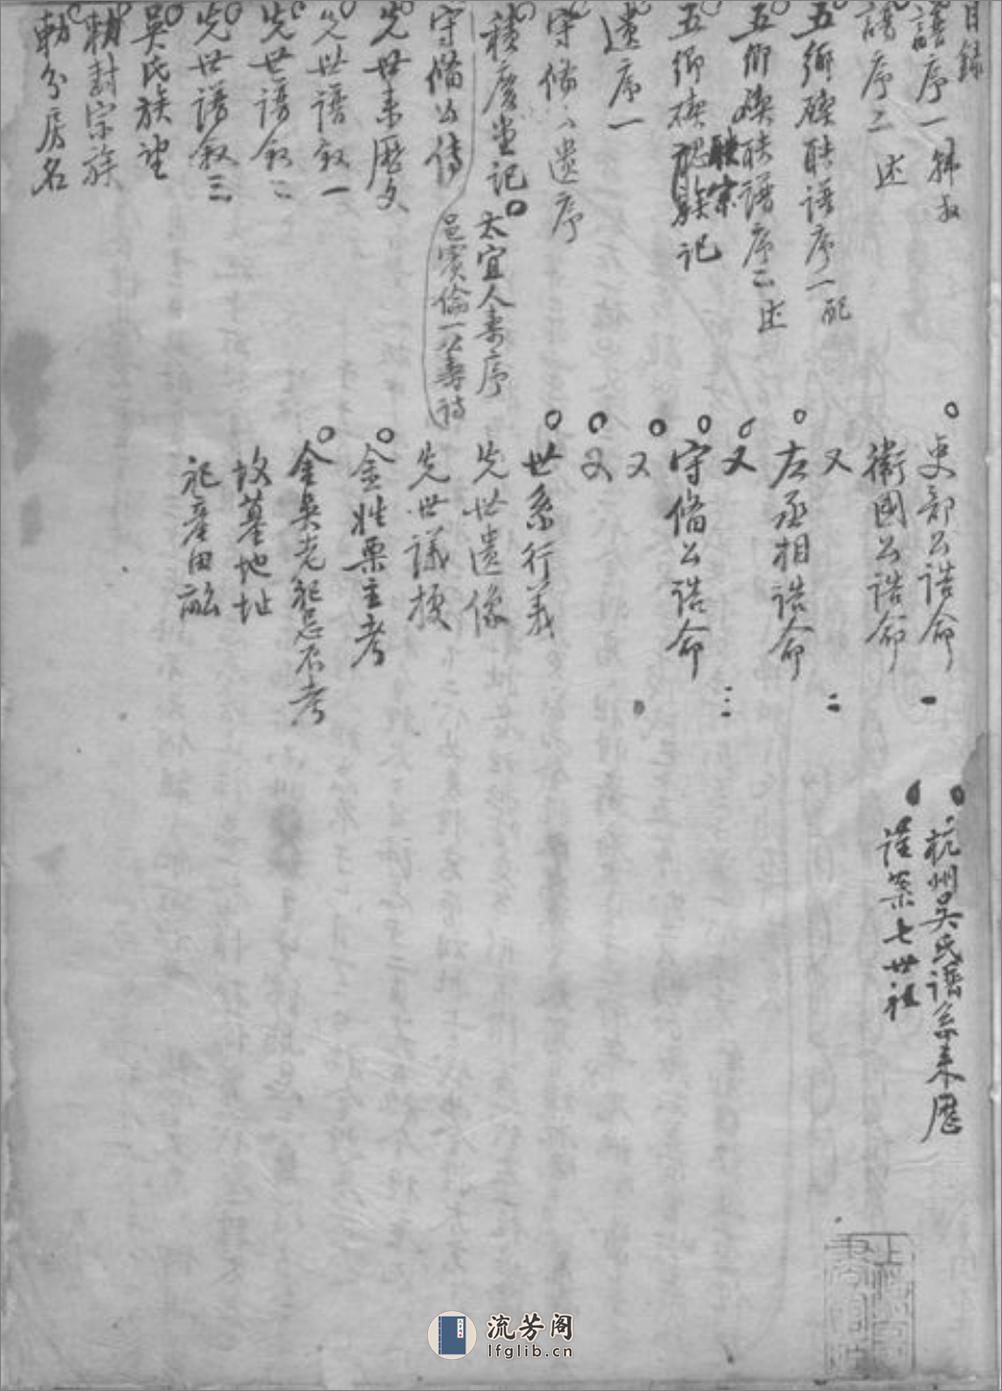 目錄
譜序一
譜序二 述
五鄉磜聯譜序一
五鄉磜聯譜序二 述
五鄉磜聯宗記
遺序一
守備公遺序
積慶堂記
太宜人壽序
守備公傳
邑賓倫一公壽詩
先世來歷文
先世譜敘一
先世譜敘二
先世譜敘三
吳氏族望
勅封宗族
勅分房名
吏部公誥命 一
衛國公誥命
又 二
左丞相誥命
又 三
守備公誥命
又
又
世系行義
先世遺像
先世議據
金姓粟主考
金吳老祀忌不考
坟墓地址
祀產田畝
杭州吳氏譜系來歷
謹案七世祖
流芳阁
lfglib.cn